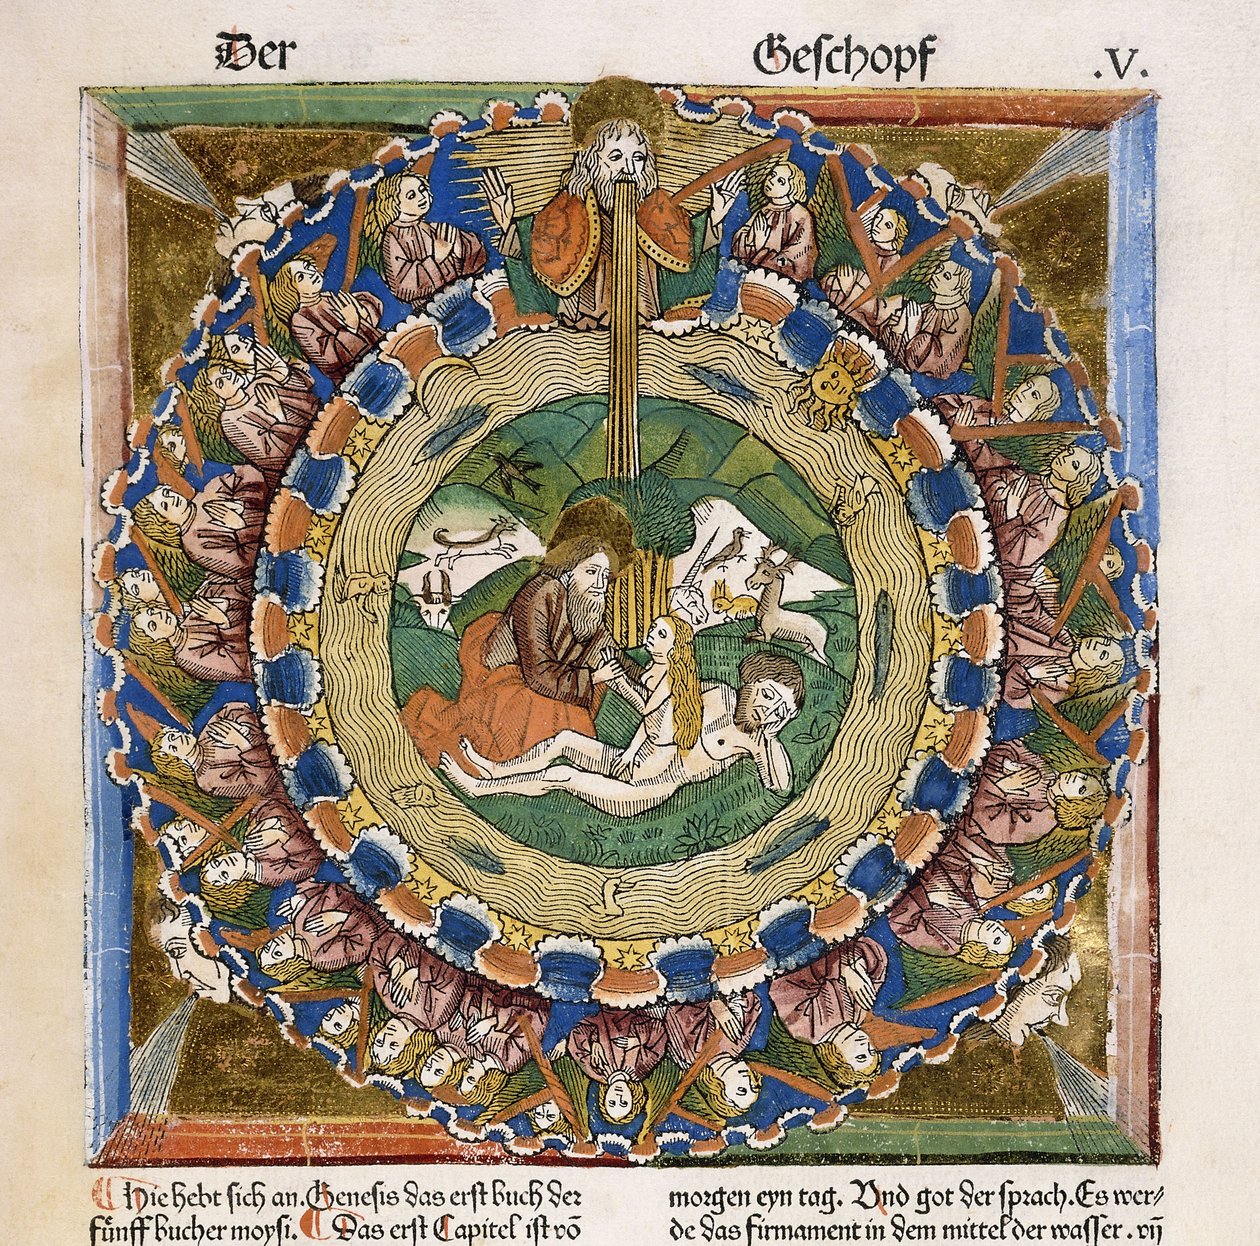 Der Geschopf .V.
Hie hebt sich an. Genesis das erst buch der
fünff bucher moysi. Das erst Capitel ist vō
morgen eyn tag. Vnd got der sprach. Es wer⸗
de das firmament in dem mittel der wasser. vij